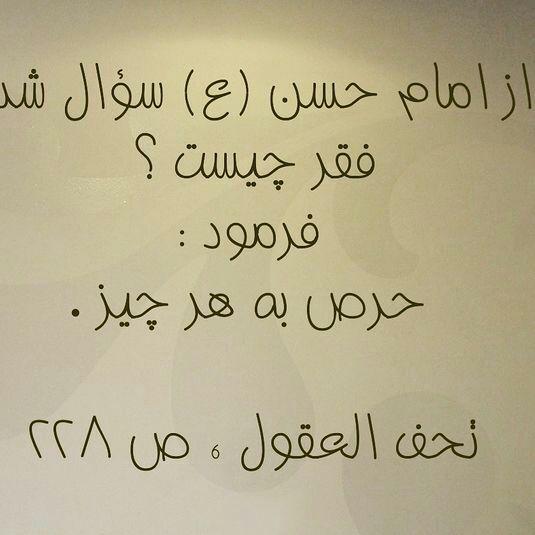 از امام حسن (ع) سؤال شد
فقر چیست ؟
فرمود :
حرص به هر چیز .
تحف العقول ، ص ۲۲۸